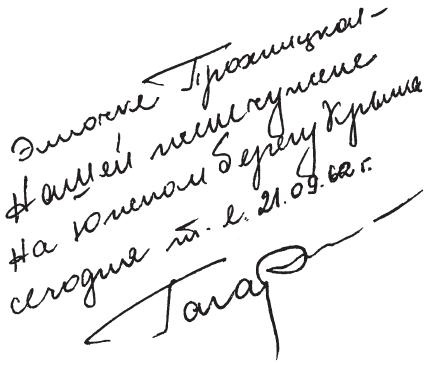 Эллочке Трояницкой –
Нашей жемчужине
На Южном берегу Крыма
сегодня т. е. 21.09.62 г.
Гага